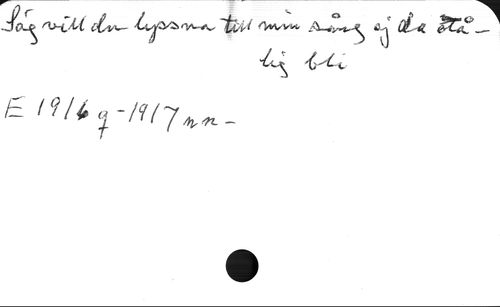 Säg vill du lyssna till min sång ej då otå-
lig bli
E 1916 q - 1917 nn -